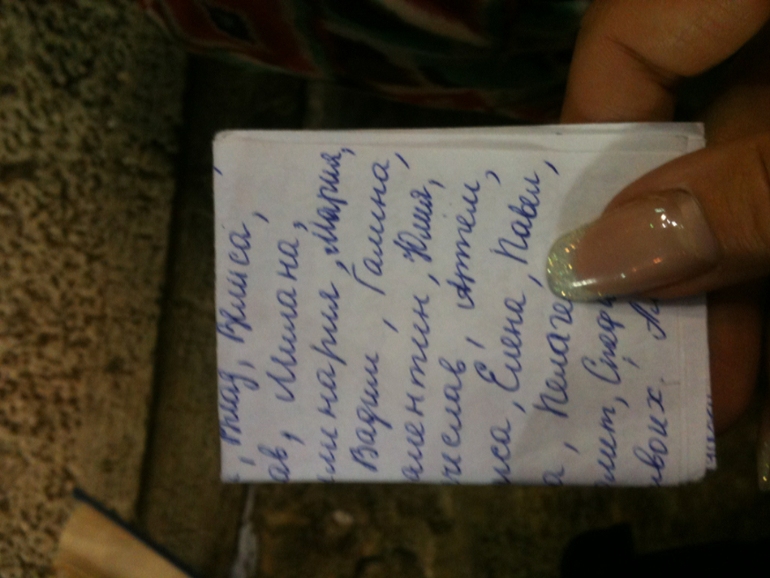 , Влад, Василиса,
ав, Милана,
линария, Мария,
Вадим, Галина,
алентин, Юлия,
числав, Артем,
иса, Елена, Павел,
а, Пелаге
лит, Стеф
твоих.